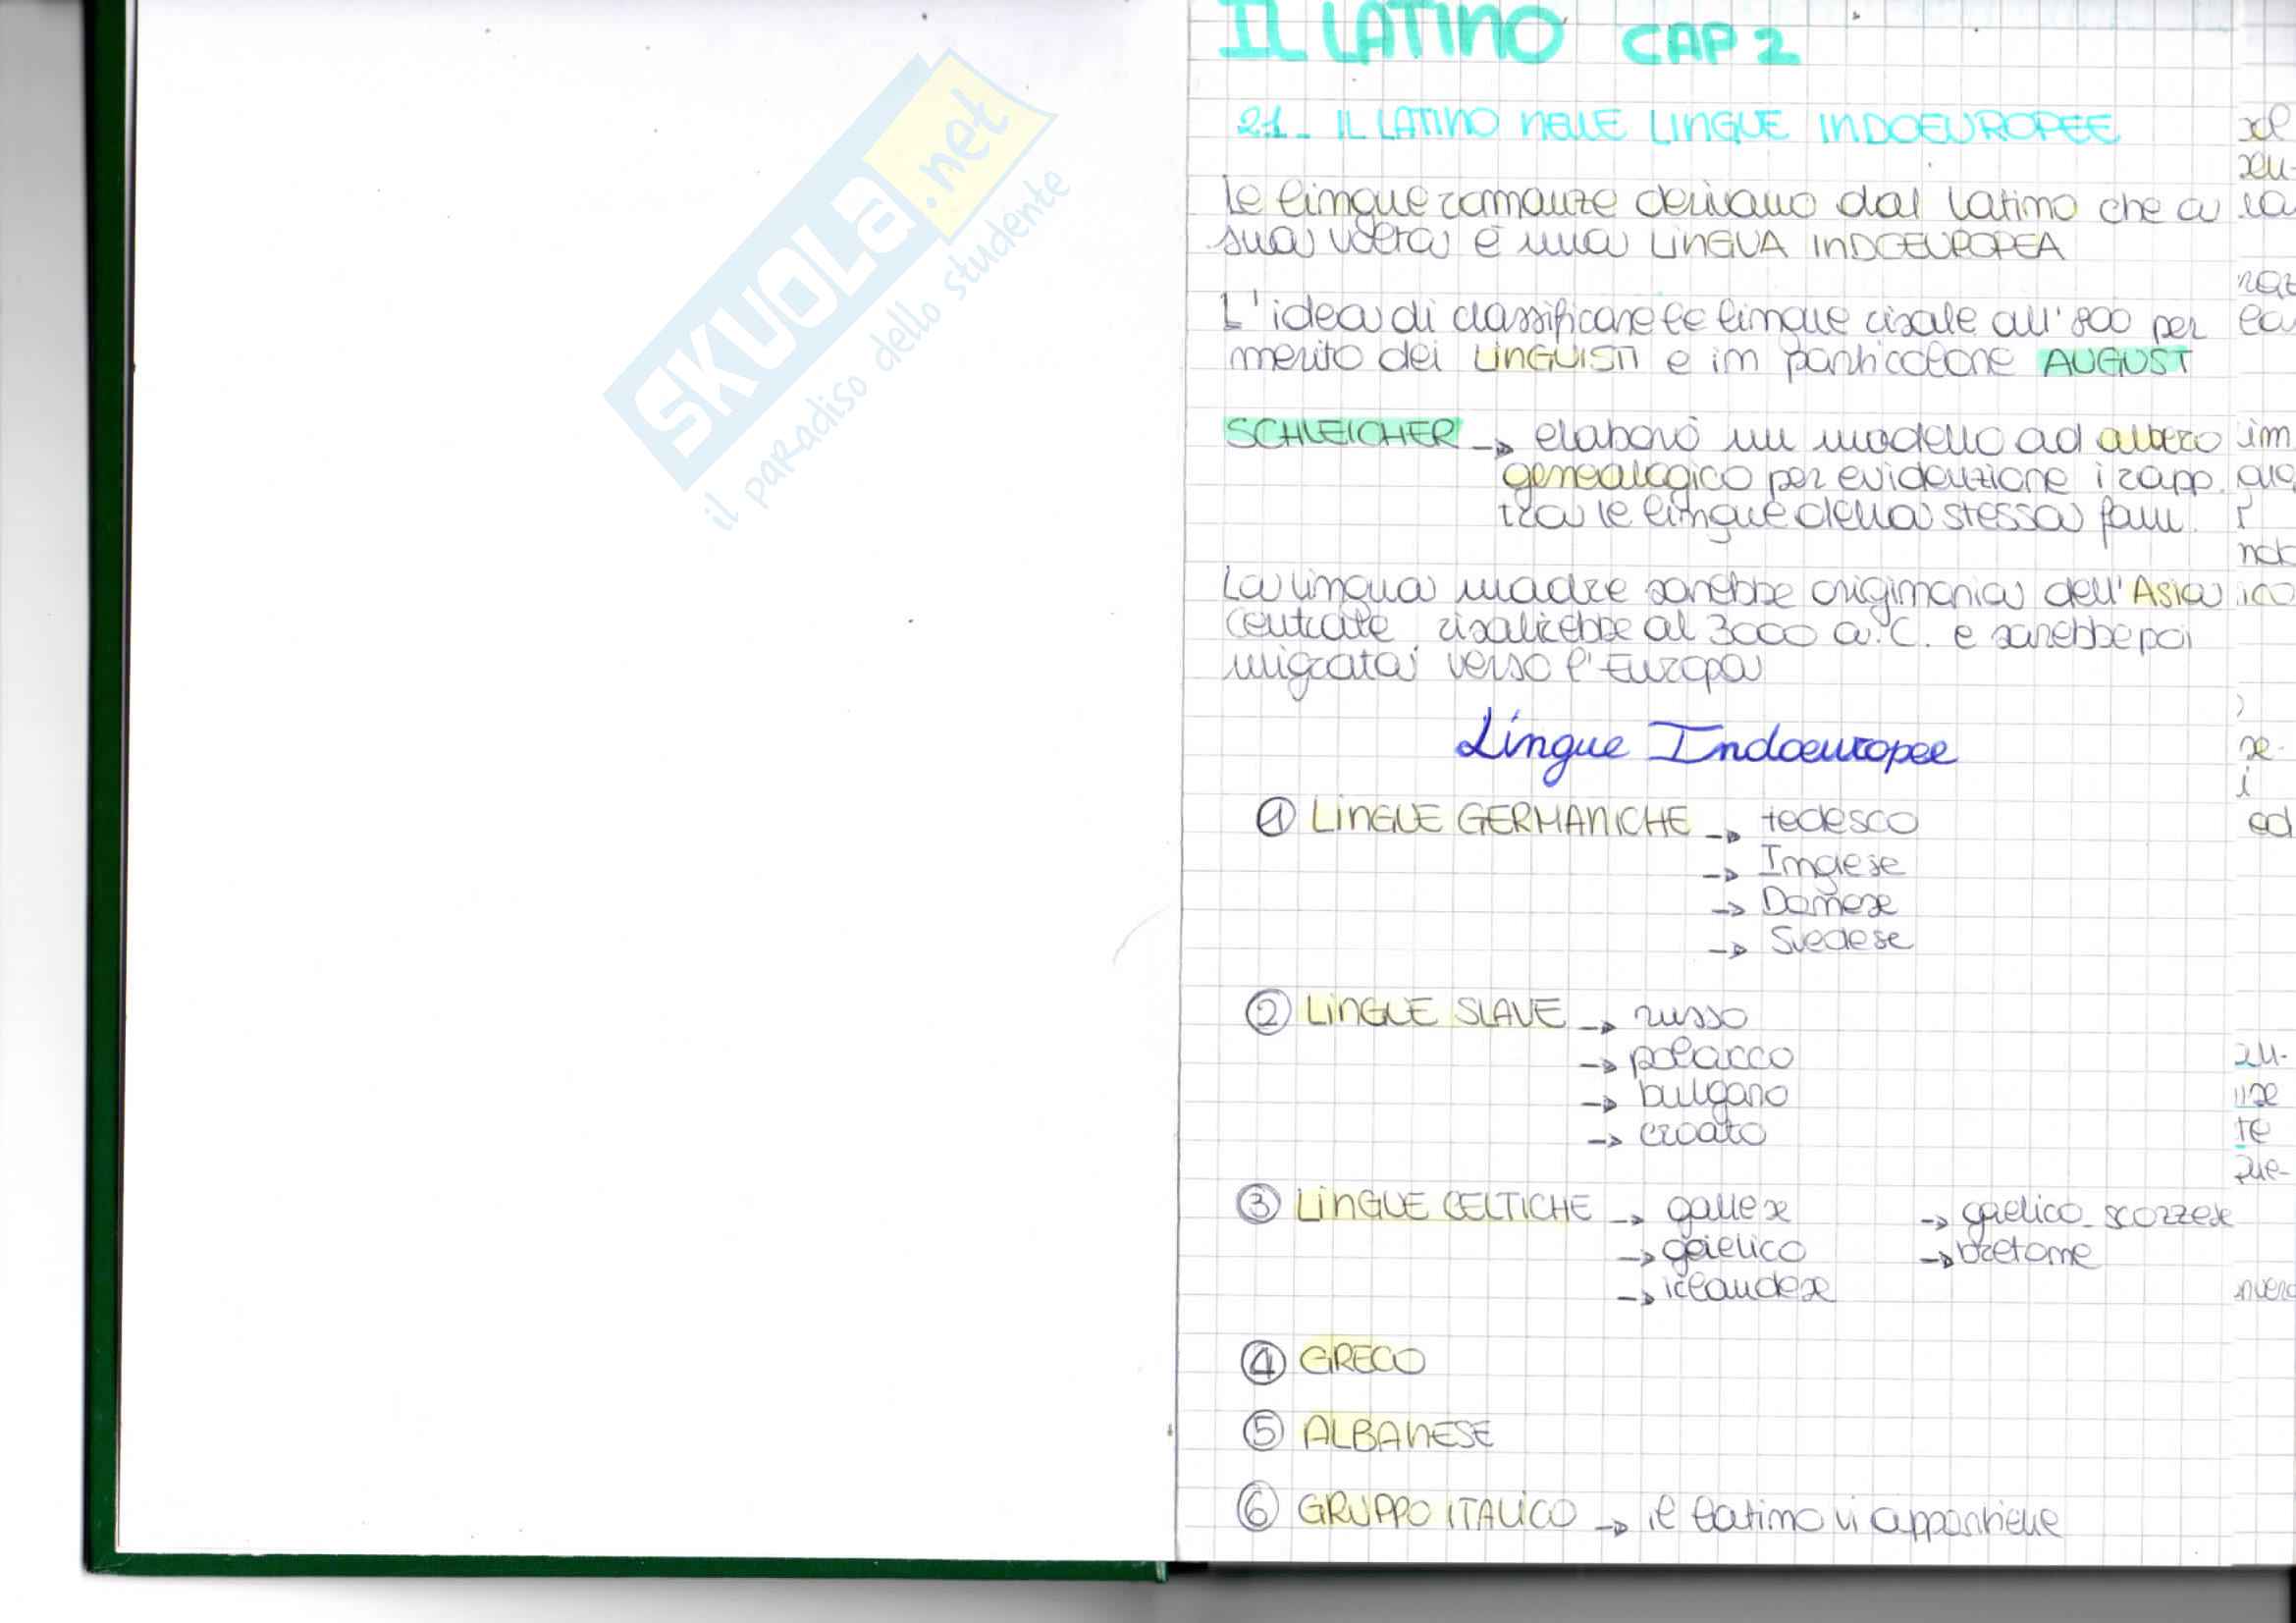 SKUOLA.net
il paradiso dello studente
IL LATINO CAP 2
2.1_ IL LATINO NELLE LINGUE INDOEUROPEE
Le lingue romanze derivano dal latino che a
sua volta è una LINGUA INDOEUROPEA
L'idea di classificare le lingue risale all'800 per
merito dei LINGUISTI e in particolare AUGUST
SCHLEICHER → elaborò un modello ad albero
genealogico per evidenziare i rapp.
tra le lingue della stessa fam.
La lingua madre sarebbe originaria dell'Asia
centrale, risalirebbe al 3000 a.C. e sarebbe poi
migrata verso l'Europa
Lingue Indoeuropee
① LINGUE GERMANICHE → tedesco
→ Inglese
→ Danese
→ Svedese
② LINGUE SLAVE → russo
→ polacco
→ bulgaro
→ croato
③ LINGUE CELTICHE → gallese → gaelico_scozzese
→ gaelico → bretone
→ irlandese
④ GRECO
⑤ ALBANESE
⑥ GRUPPO ITALICO → il latino vi appartiene